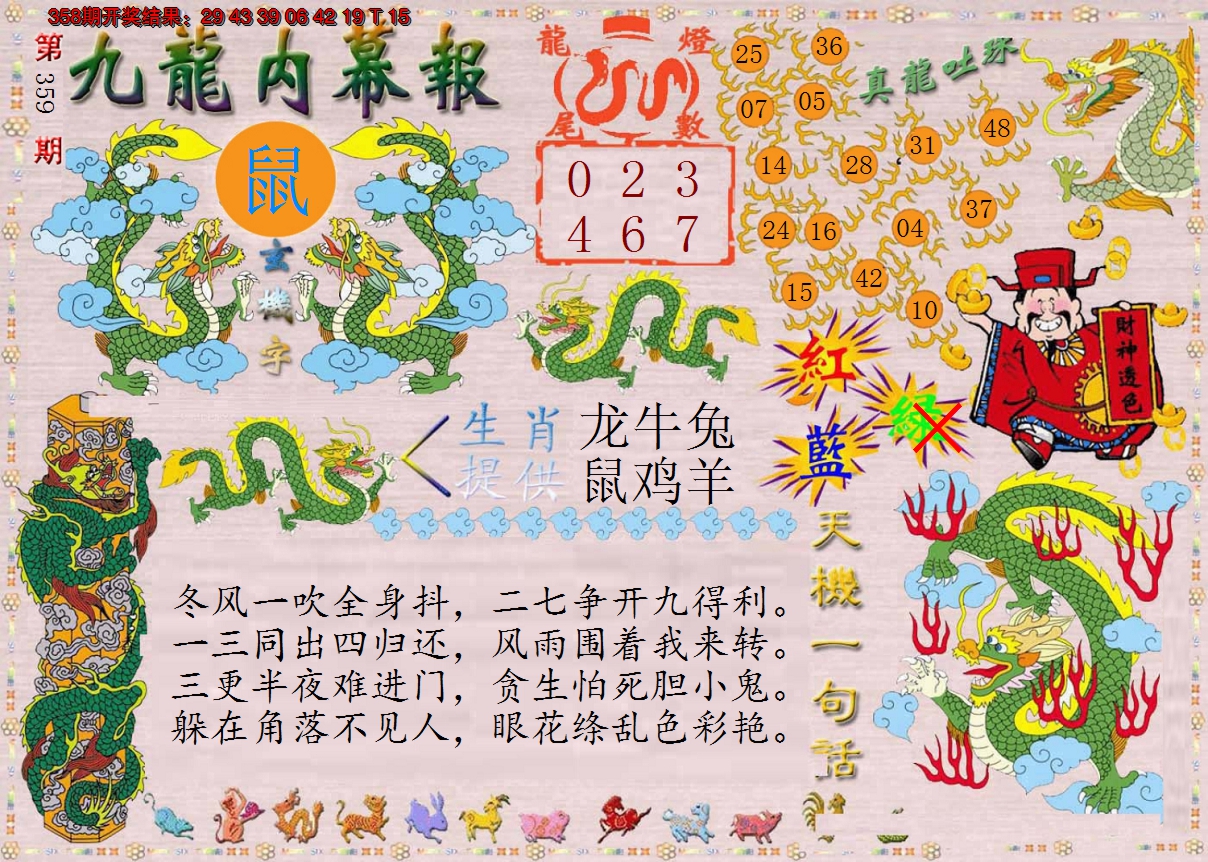 358期开奖结果：29 43 39 06 42 19 T 15
第359期
九龍内幕報
鼠
玄機字
龍燈
尾數
0 2 3
4 6 7
真龍吐珠
25 36
07 05
14 28 31 48
24 16 04 37
15 42 10
紅
綠
藍
財神透色
生肖 龙牛兔
提供 鼠鸡羊
天機一句话
冬风一吹全身抖，二七争开九得利。
一三同出四归还，风雨围着我来转。
三更半夜难进门，贪生怕死胆小鬼。
躲在角落不见人，眼花绦乱色彩艳。